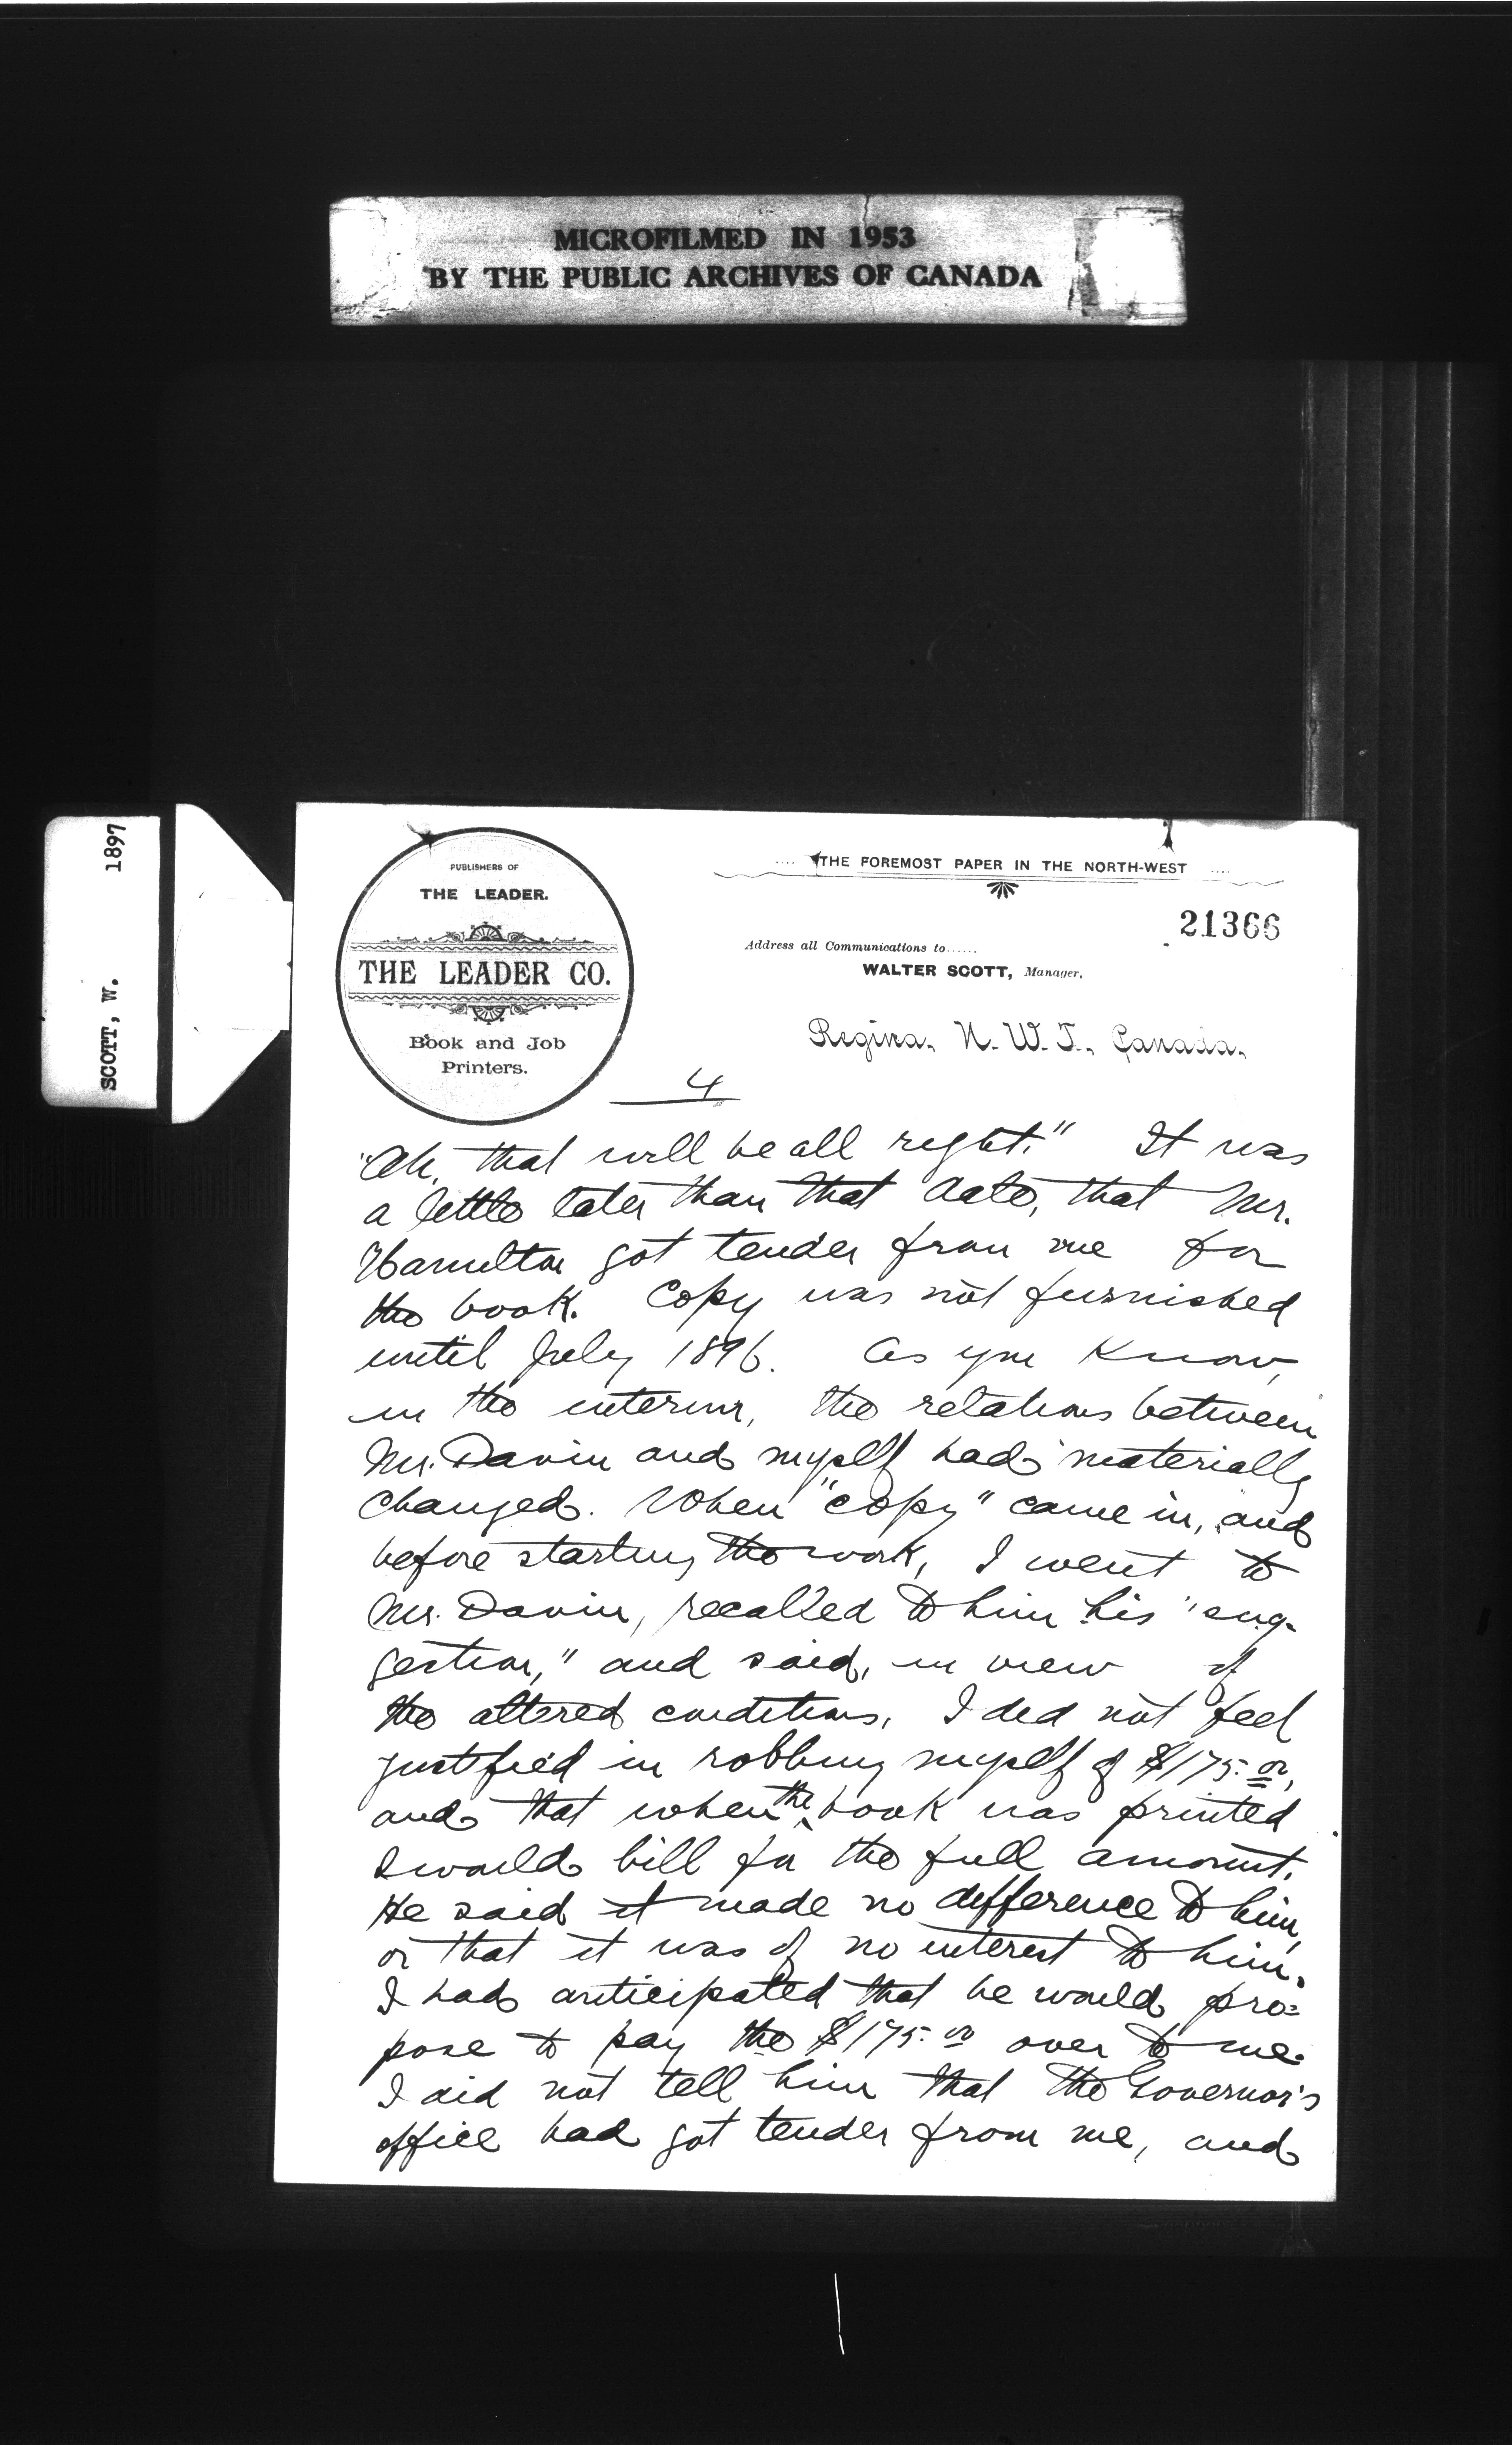 MICROFILMED IN 1953
BY THE PUBLIC ARCHIVES OF CANADA
SCOTT, W. 1897
PUBLISHERS OF
THE LEADER.
THE LEADER CO.
Book and Job
Printers.
THE FOREMOST PAPER IN THE NORTH-WEST
21366
Address all Communications to......
WALTER SCOTT, Manager.
Regina, N. W. T., Canada.
4
"Oh, that will be all right." It was
a little later than that date, that Mr.
Hamilton got tender from me for
the book. Copy was not furnished
until July 1896. As you know,
in the interim, the relations between
Mr. Davin and myself had materially
changed. When "copy" came in, and
before starting the work, I went to
Mr. Davin, recalled to him his "sug-
gestion," and said, in view of
the altered conditions, I did not feel
justified in robbing myself of $175.00,
and that when the book was printed
I would bill for the full amount.
He said it made no difference to him,
or that it was of no interest to him.
I had anticipated that he would pro=
pose to pay the $175.00 over to me.
I did not tell him that the Governor's
office had got tender from me, and